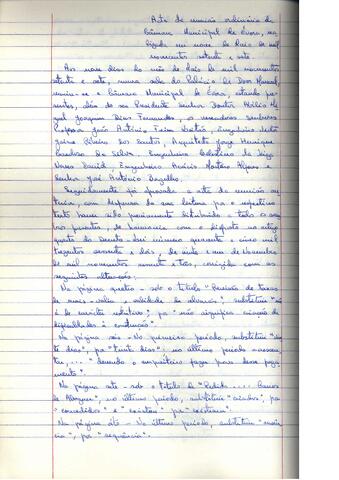 Acta da reunião ordinária da
Câmara Municipal de Évora, rea
lizada em nove de Maio de mil
novecentos setenta e sete.
Aos nove dias do mês de Maio de mil novecentos
setenta e sete, numa sala do Palácio de Dom Manuel,
reuniu-se a Câmara Municipal de Évora, estando pre
sentes, além do seu Presidente Senhor Doutor Abílio Mi
guel Joaquim Dias Fernandes, os vereadores Senhores
Professor João António Leitão, Engenheiro
Jaime Ribeiro dos Santos, Arquitecto Jorge Henrique
da Silva, Engenheiro
David, Engenheiro Alpaes e
Senhor José António
Seguidamente foi aprovada a acta da reunião an
terior, com dispensa da sua leitura por o respectivo
texto haver sido previamente distribuído a todos os mem
bros presentes, de harmonia com o disposto no artigo
quarto do Decreto-Lei número quarenta e cinco mil
trezentos sessenta e dois, de vinte e um de Novembro
de mil novecentos sessenta e três, corrigida com as
seguintes alterações:
- Na página quatro - sob o título "Revisão de taxas
de mais-valia e ", substituir "não
é de carácter ", por "não significa criação de
dificuldades à construção".
Na página seis - No primeiro período, substituir "vin
te dias", por "trinta dias"; no último período acrescen
tar, ... "devendo o empreiteiro fazer prova desse paga
mento".
Na página sete - sob o título de "Pedido .... Bairro
de ", no último período, substituir "criados", por
"concedidos" e "existem" por "existirem".
Na página oito - No último período, substituir
", por "sequência".